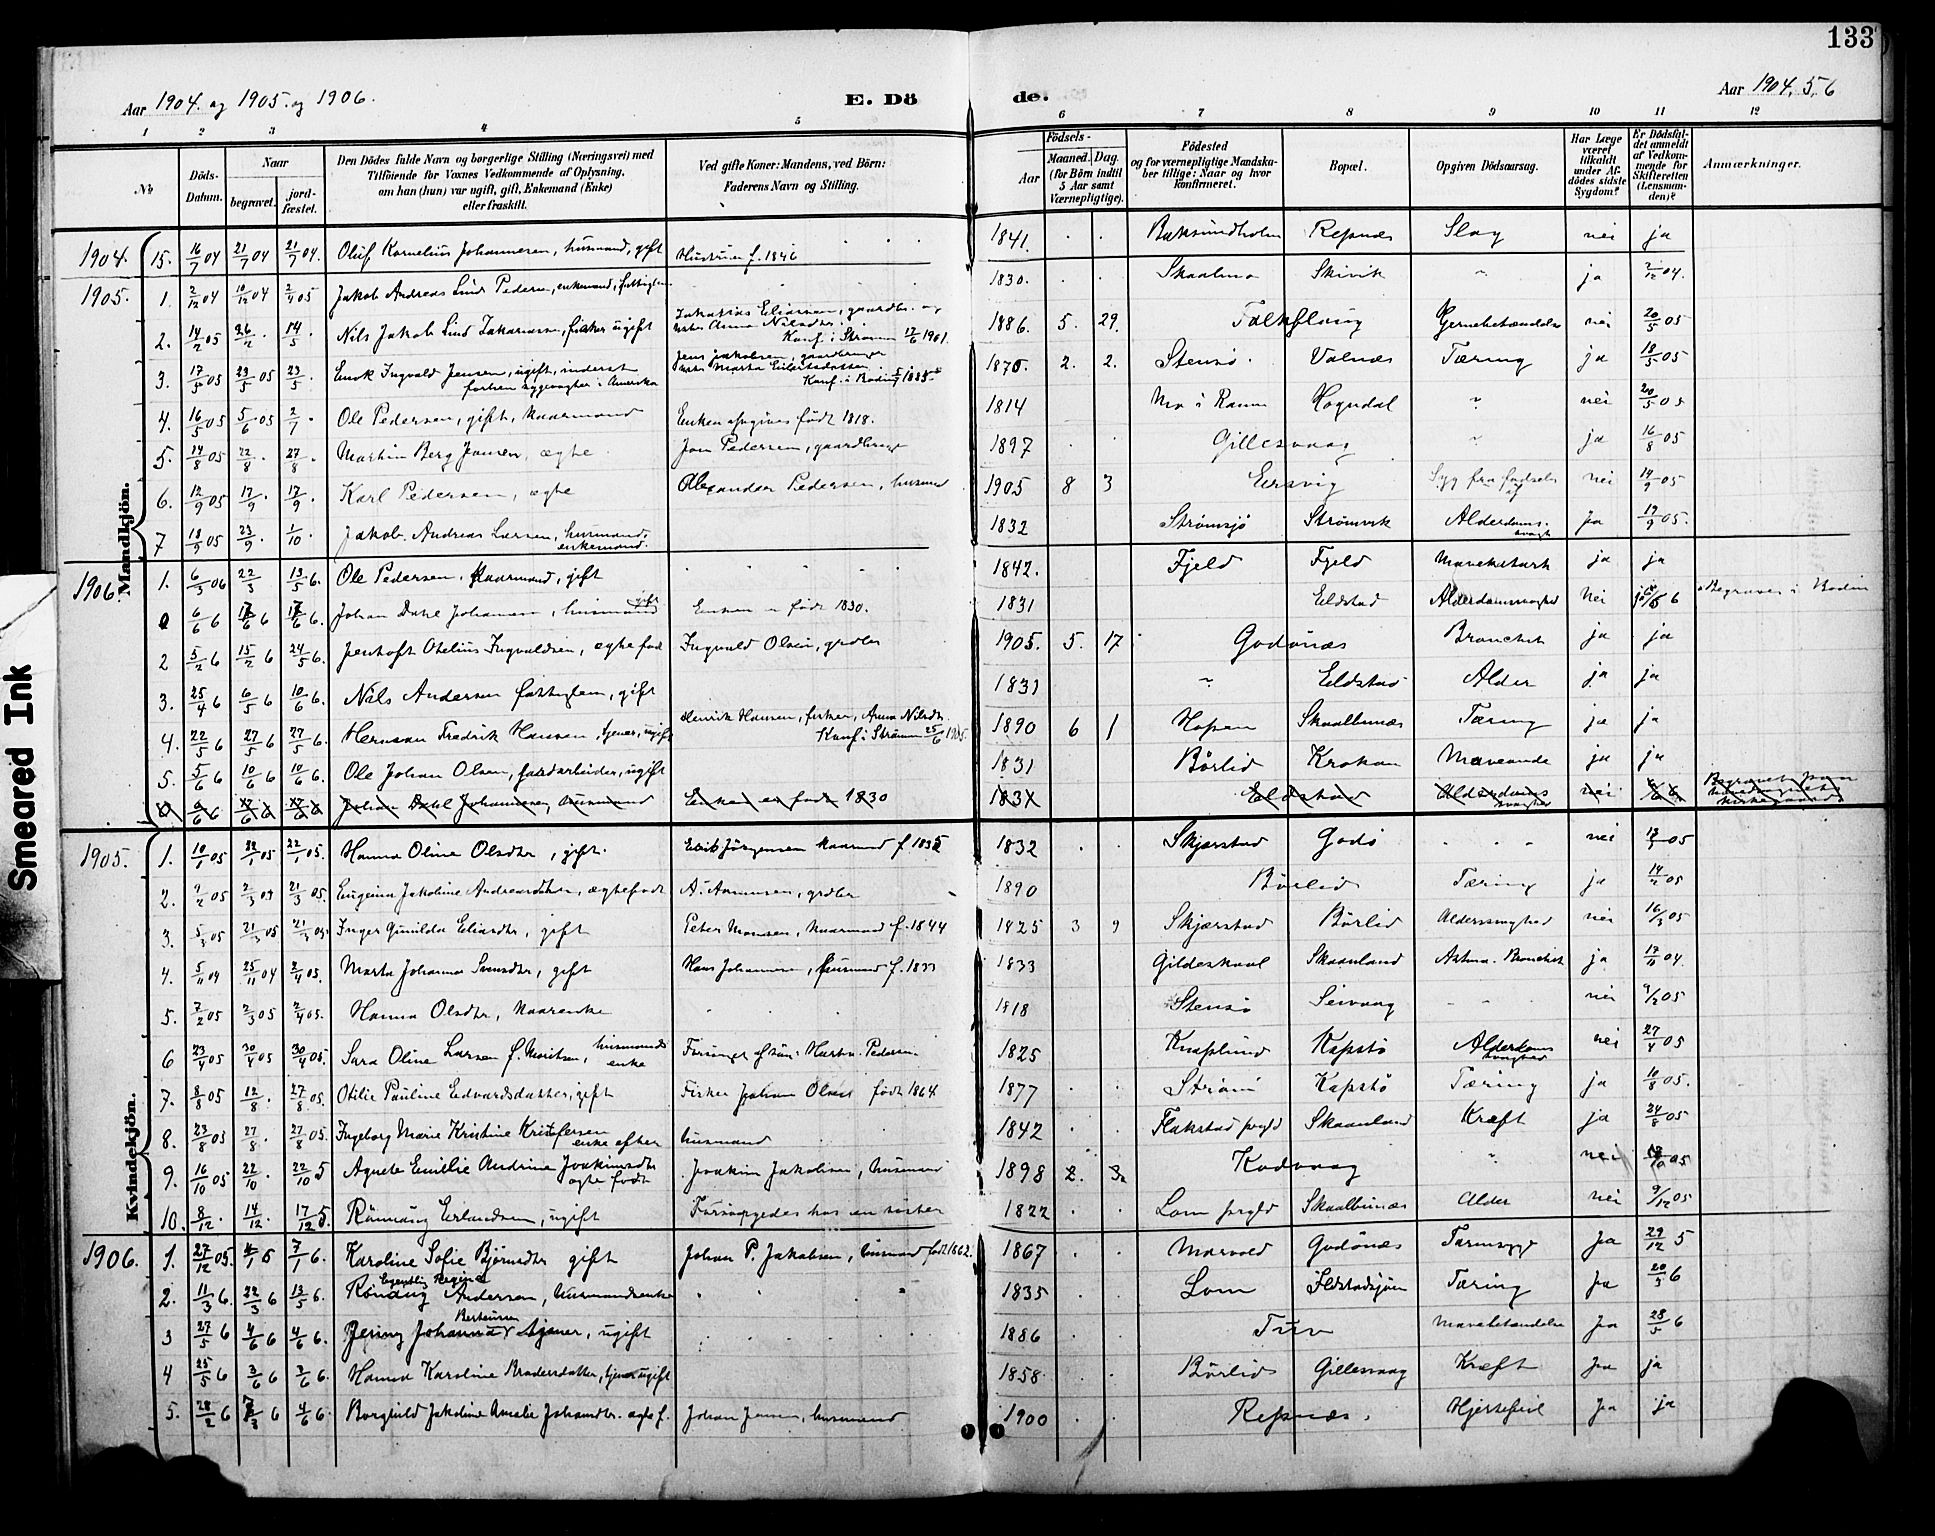 133
Aar 1904. og 1905. og 1906.
E. Dö
de.
Aar 1904, 5, 6
1 2 3 4 5 6 7 8 9 10 11 12
No
Döds-Datum.
Naar
begravet.
jord-fæstet.
Den Dödes fulde Navn og borgerlige Stilling (Næringsvei) med
Tilföiende for Voxnes Vedkommende af Oplysning,
om han (hun) var ugift, gift, Enkemand (Enke)
eller fraskilt.
Ved gifte Koner: Mandens, ved Börn:
Faderens Navn og Stilling.
Födsels-
Aar
Maaned. Dag.
(for Börn indtil
5 Aar samt
Værnepligtige).
Födested
og for værnepligtige Mandska-
ber tillige: Naar og hvor
konfirmeret.
Bopæl.
Opgiven Dödsaarsag.
Har Læge
været
tilkaldt
under Af-
dödes sidste
Sygdom?
Er Dödsfal-
det anmeldt
af Vedkom-
mende for
Skifteretten
(Lensman-
den)?
Anmærkninger.
Mandkjön.
1904. 15. 16/7 04 21/7 04 21/7 04. Oluf Kornelius Johannesen, husmand, gift Hustruen f. 1846 1841. Repnæs Slag nei ja
1905. 1. 2/12 04 10/12 04 2/4 05 Jakob Andreas Lind Pedersen, enkemand, fattiglem 1830. Skivik " ja 2/12 04.
2. 14/2 05 26/2 14/5 Nils Jakob Lind Zakariassen, fisker ugift Zakarias Eliassen, gaardbr. og Anna Nilsdtr. Konf. i Strømm 1901. 1886. 5. 29. nei 20/5 05
3. 17/5 05 23/5 05 23/5 Enok Ingvald Jensen, ugift, inderst forhen sygevogter i Amerika Jens Jakobsen, gaardbruger Marta Konf. i Bodin 2. 2. Stensø Valnæs Tæring ja 18/5 05
4. 16/5 05 5/6 05 2/7 Ole Pedersen, gift, kaarmand Enken opgives født 1818. 1814 Mo i Ranen Hogndal " nei 20/5 05
5. 14/8 05 22/8 27/8 Martin Berg Jensen, ægte Jon Pedersen, gaardbruger 1897 Gillesvaag " ja 16/8 05
6. 12/9 05 17/9 17/9 Karl Pedersen, ægte Alexander Pedersen, husmand 1905 8 3 Eersvig Syg fra fødselen af nei 14/9 05
7 18/9 05 23/9 1/10 Jakob Andreas Larsen, husmand, enkemand. 1832 Strømsjø Strømvik Alderdoms-svagh. ja 19/9 05.
1906. 1. 6/3 06 22/3 13/5 6. Ole Pedersen, kaarmand, gift 1842. Fjeld Fjeld Mavekatarh ja ja
6/6 6 17/6 6 17/6 6. Johan Dahl Johannesen, husmand gift Enken er født 1830. 1831 Eldstad Alderdomssvaghed Nei Begraves i Bodin
2 5/2 6 15/2 6 24/5 6. Jentoft Otelius Ingvaldsen, ægtefød Ingvald Olsen, grdbr 1905. 5. 17 Godønæs Bronchit ja ja
3. 25/4 6 6/5 6 10/6 6. Nils Andersen fattiglem, gift 1831 " Eldstad Alder ja ja
4. 22/5 6 27/5 6 27/5 6. Herman Fredrik Hansen, tjener, ugift Henrik Hansen, fisker, Anna Nilsdtr. Konf. i Strømm 25/6 1905. 1890 6 1 Hopen Skaalbunæs Tæring ja ja
5. 5/6 6 10/6 6 10/6 6. Ole Johan Olsen, jordarbeider, ugift 1831 Børlid Krokan Maveonde ja ja
Johan Dahl Johannesen, husmand Enken er født 1830 1831 Eldstad Alderdoms-svaghed nei
Kvindekjön.
1905. 1. 10/1 05 22/1 05 22/1 05. Hanna Oline Olsdtr, gift. Erik Jörgensen kaarmand f 1832 Skjærstad Godø nei
2. 7/2 05 2/3 05 21/3 05. Eugenia Jakobine Andreasdtter, ægtefødt A. Asmusen, grdbr 1890 Børlid Tæring ja 14/2 05
3. 5/3 05 21/3 05 21/3 05 Inger Gunilda Eliasdtr, gift Peter Monsen, kaarmand f. 1844 1825 3 9 Skjærstad Børlid Alderssvaghed nei 16/3 05
4. 5/11 04 25/11 04 2/4 05. Marta Johanna Svensdtr, gift Hans Johannesen, husmand f. 1833 Gildeskaal Skaanland Astma. Bronchit ja 17/11 04.
5. 7/2 05 2/3 05 2/4 05. Hanna Olsdtr, kaarenke 1818 Stensø Seivaag nei 9/2 05
6 23/4 05 30/4 05 30/4 05. Sara Oline Larsen f. Moritsen, husmands enke Forsørges af søn: Pedersen 1825 Knaplund Kapstø Alderdoms svaghed nei 27/4 05
7. 8/8 05 12/8 27/8 05. Otilie Pauline Edvardsdatter, gift Fisker Johan Olsen født 1864 1877 Strømm Kapstø Tæring ja 10/8 05.
8. 23/8 05 27/8 27/8 05. Ingeborg Marie Kristine Kristofersen enke efter husmand 1842 Flakstad prgld Skaanland Kræft ja 24/8 05
9. 16/10 05 22/10 22/10 5 Agnete Emilie Andrine Joakimsdtr ægte født Joakim Jakobsen, husmand 1898 2. 3. Kodvaag " nei 05
10. 8/12 14/12 17/12 5 Rönnaug Erlandsen, ugift Forsørgedes hos en søster 1822 Lom prgld Skaalbunæs Alder nei 9/12 05
1906. 1. 27/12 05. 4/1 5 7/1 6. Karoline Sofie Bjørnsdtr gift Johan P. Jakobsen, husmand født 1862. 1867 Marvold Godönæs Tarmsyge ja 29/12 5
2. 11/3 6. 22/3 6 13/5 6. Rönaug Egentlig Regine Andersen, husmandsenke 1835 Lom Ildstadsjøen Tæring ja 20/3 6
3 27/5 6 4/6 6 4/6 6. Johanna Berteussen tjener, ugift 1886 Tuv Mavebetændelse ja 28/5 6
4 25/5 6 3/6 6 3/6 6. Hanna Karoline tjener ugift 1858 Børlid Gillesvaag Kræft ja ja
5. 28/2 6 6 4/6 6 Borghild Jakobine Amalie Johandtr. ægte f. Johan Jensen, husmand 1900 Repnæs. Hjertefeil ja ja
Smeared Ink